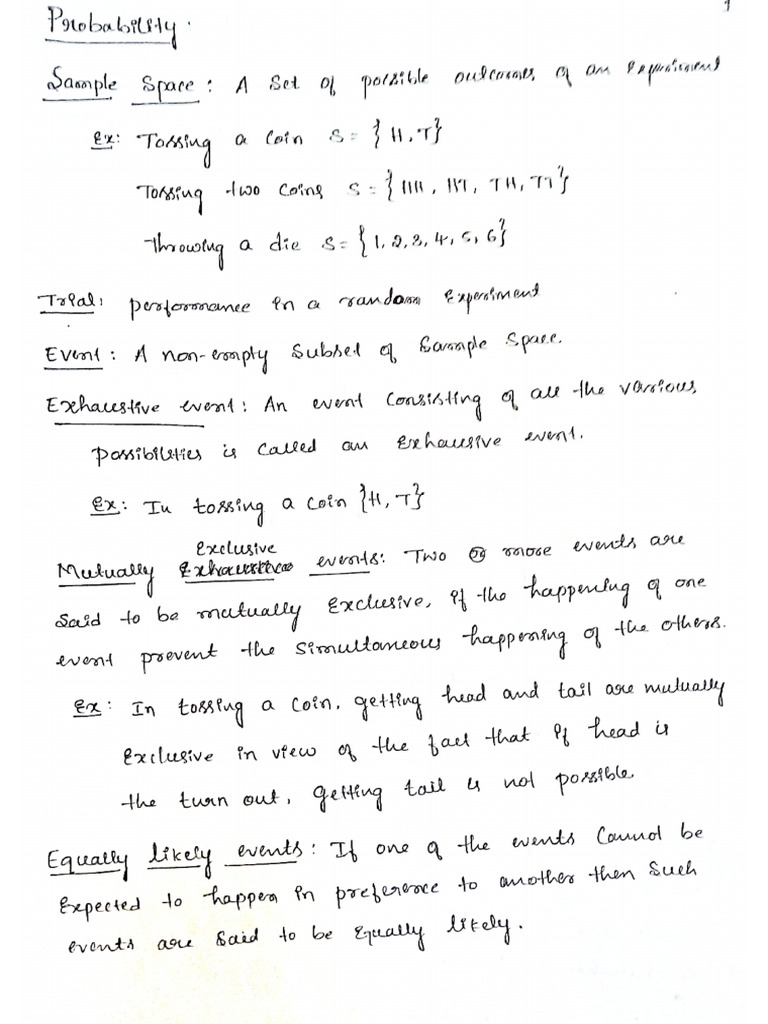 Probability.
Sample Space: A set of possible outcomes of an experiment
Ex: Tossing a coin S = {H, T}
Tossing two coins S = {HH, HT, TH, TT}
Throwing a die S = {1, 2, 3, 4, 5, 6}
Trial: performance in a random experiment
Event: A non-empty subset of sample space.
Exhaustive event: An event consisting of all the various
possibilities is called an exhausive event.
Ex: In tossing a coin {H, T}
Exclusive
Mutually Exhaustive events: Two or more events are
said to be mutually exclusive, if the happening of one
event prevent the simultaneous happening of the others.
Ex: In tossing a coin, getting head and tail are mutually
exclusive in view of the fact that if head is
the turn out, getting tail is not possible
Equally likely events: If one of the events cannot be
expected to happen in preference to another then such
events are said to be equally likely.